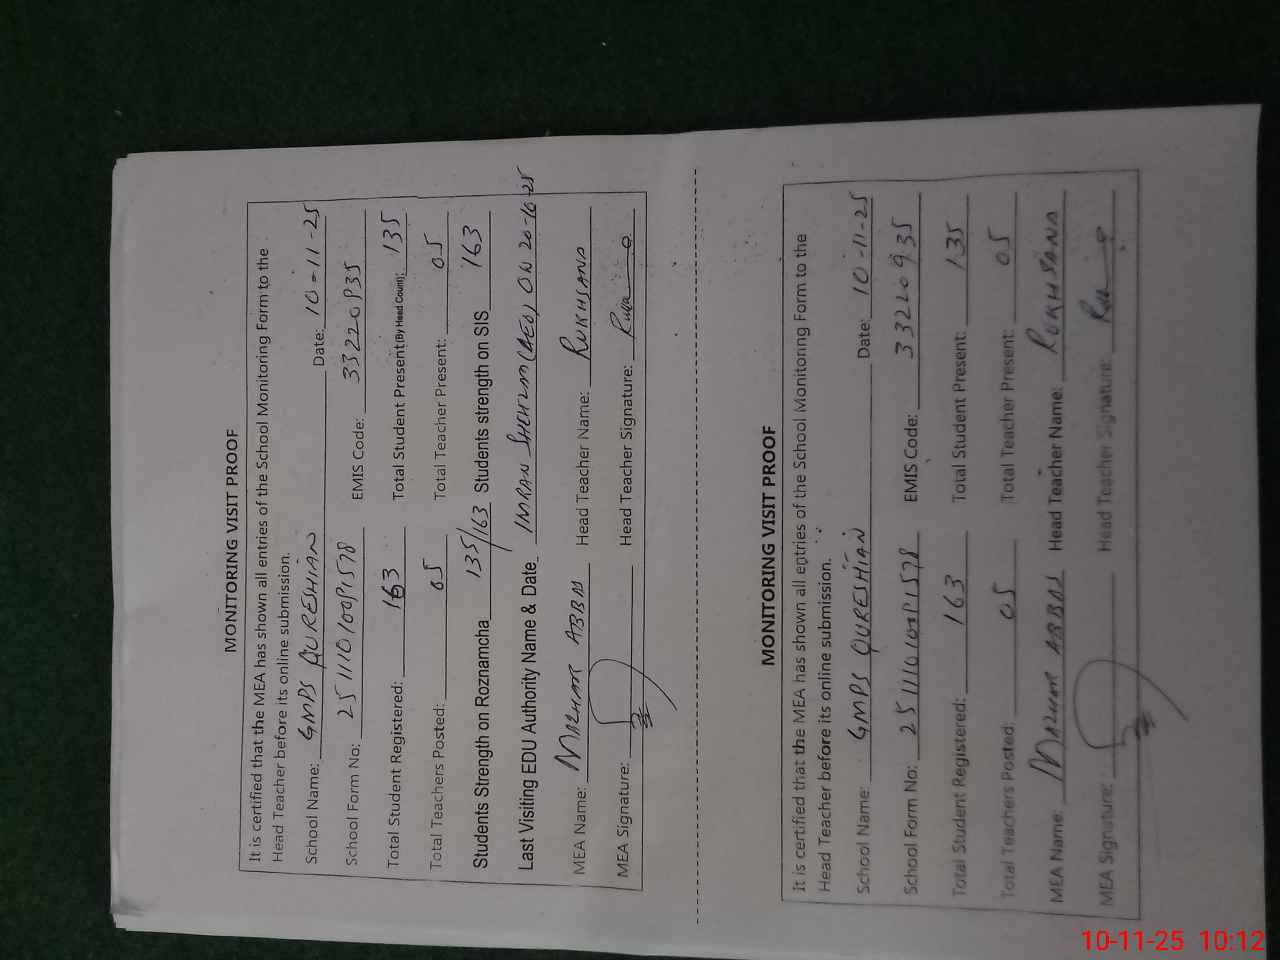 MONITORING VISIT PROOF
It is certified that the MEA has shown all entries of the School Monitoring Form to the
Head Teacher before its online submission.
School Name: GMPS QURESHIAN Date: 10-11-25
School Form No: EMIS Code: 33220935
Total Student Registered: 163 Total Student Present(By Head Count): 135
Total Teachers Posted: 05 Total Teacher Present: 05
Students Strength on Roznamcha 135/163 Students strength on SIS 163
Last Visiting EDU Authority Name & Date IMRAN SHEHZAD (AEO) ON 20-10-25
MEA Name: MAZHAR ABBAS Head Teacher Name: RUKHSANA
MEA Signature: Head Teacher Signature:
MONITORING VISIT PROOF
It is certified that the MEA has shown all entries of the School Monitoring Form to the
Head Teacher before its online submission.
School Name: GMPS QURESHIAN Date: 10-11-25
School Form No: EMIS Code: 33220935
Total Student Registered: 163 Total Student Present: 135
Total Teachers Posted: 05 Total Teacher Present: 05
MEA Name: MAZHAR ABBAS Head Teacher Name: RUKHSANA
MEA Signature: Head Teacher Signature:
10-11-25 10:12